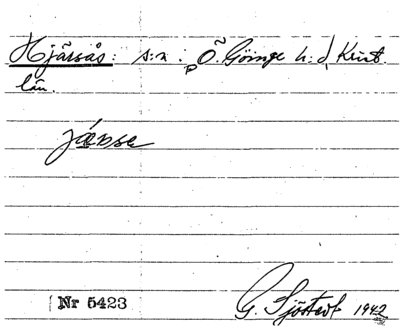 Hjärsås: s:n. Ö. Göinge h:d, Krist.
län.
järse
Nr 5423
G. Sjöstedt 1942